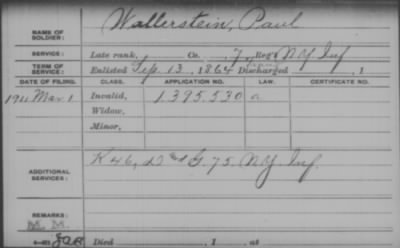 NAME OF SOLDIER: Wallerstein, Paul
SERVICE: Late rank, Co. 7, Reg't N.Y. Inf
TERM OF SERVICE: Enlisted Sep. 13, 1864 Discharged , 1
DATE OF FILING. CLASS. APPLICATION NO. LAW. CERTIFICATE NO.
1911 Mar 1 Invalid, 1.395.530 a
Widow,
Minor,
ADDITIONAL SERVICES: K 46, D G. 75. N.Y. Inf.
REMARKS:
M. M.
Died , 1 , at